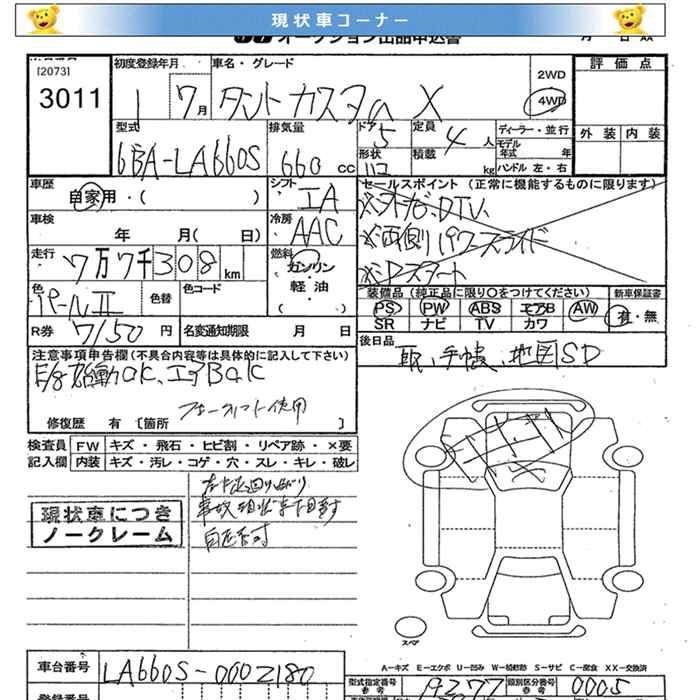 現状車コーナー
オークション出品申込書
[2073]
3011
初度登録年月
1 7月
車名・グレード
タントカスタム X
2WD
4WD
評価点
外装 内装
型式
6BA-LA660S
排気量
660 cc
ドア 5
定員 4 人
形状
積載 kg
ディーラー・並行
モデル年式 年
ハンドル 左・右
車歴
自家用・( )
シフト
IA
セールスポイント (正常に機能するものに限ります)
※ナビ、DTV、
※両側パワースライド
※Pスタート
車検 年 月( 日)
冷房
AAC
走行
7万7千308km
燃料
ガソリン・軽油・( )
色
パールII
色替
色コード
装備品 (純正品に限り○をつけてください)
PS PW ABS エアB AW
SR ナビ TV カワ
新車保証書
有・無
R券 7150円
名変通知期限 月 日
後日品
取、手帳、地図SD
注意事項申告欄(不具合内容等は具体的に記入して下さい)
E/g始動OK、エアBOK
フォークリフト使用
修復歴 有 [箇所 ]
検査員記入欄
FW キズ・飛石・ヒビ割・リペア跡・×要
内装 キズ・汚レ・コゲ・穴・スレ・キレ・破レ
現状車につき
ノークレーム
事故現状車
自走不可
スペア
A-キズ E-エクボ U-凹み W-補修跡 S-サビ C-腐食 XX-交換済
車台番号
LA660S-0002180
型式指定番号
参考
19377
類別区分番号
参考
0005
登録番号